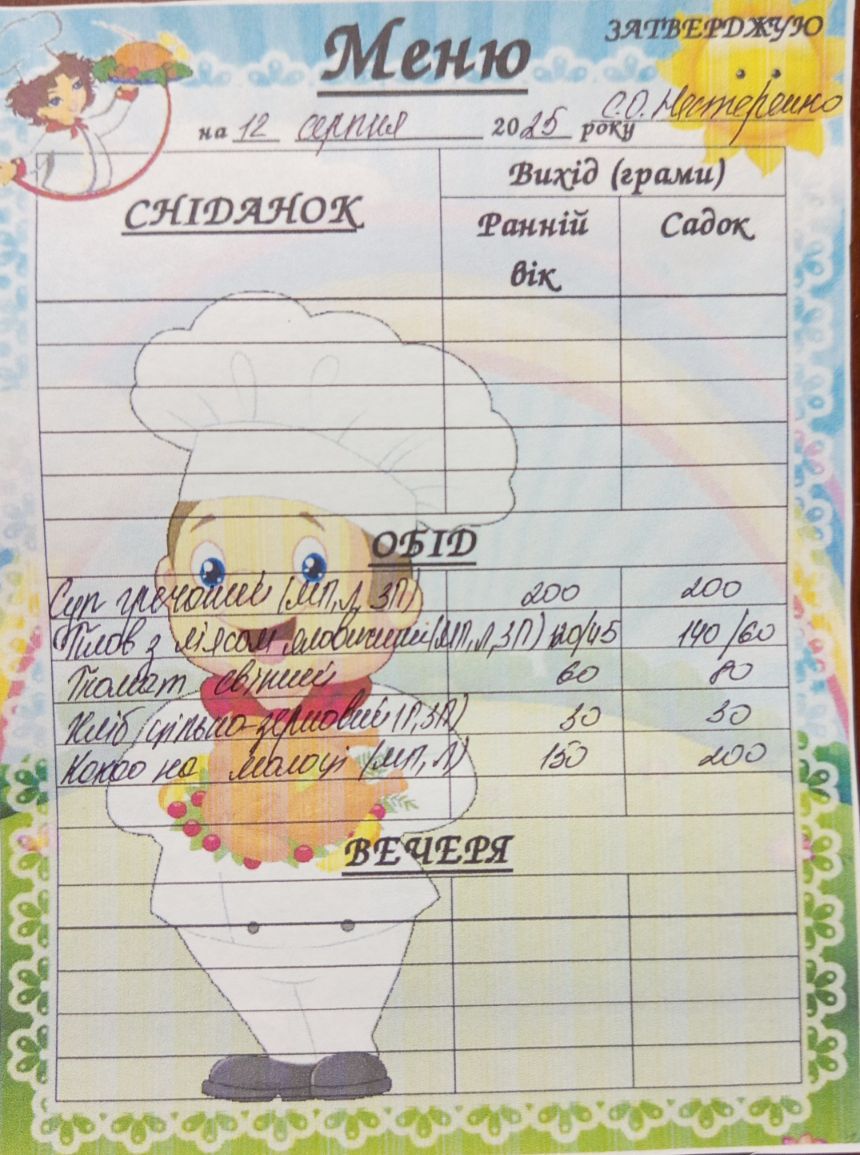 Меню
ЗАТВЕРДЖУЮ
С.О. Нестеренко
на 12 серпня 2025 року
СНІДАНОК
Вихід (грами)
Ранній вік
Садок
ОБІД
Суп гречаний (МП, Л, ЗП) 200 200
Плов з м'ясом яловичини (МП, Л, ЗП) 120/45 140/60
Томат свіжий 60 80
Хліб цільно-зерновий (П, ЗП) 30 30
Какао на молоці (МП, Л) 150 200
ВЕЧЕРЯ